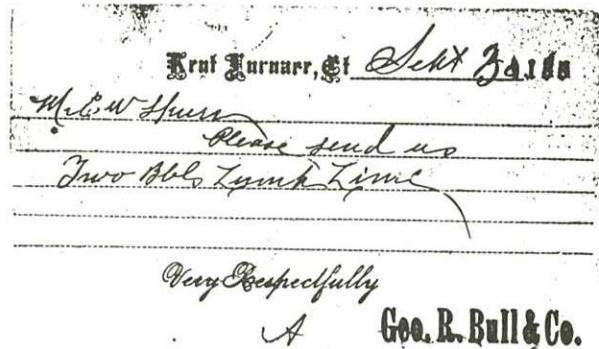 Kent Furnace, Ct Sept 3d 188
Mr E W Spurr
Please send us
Two Bbls Lump Lime
Very Respectfully
Geo. R. Bull & Co.